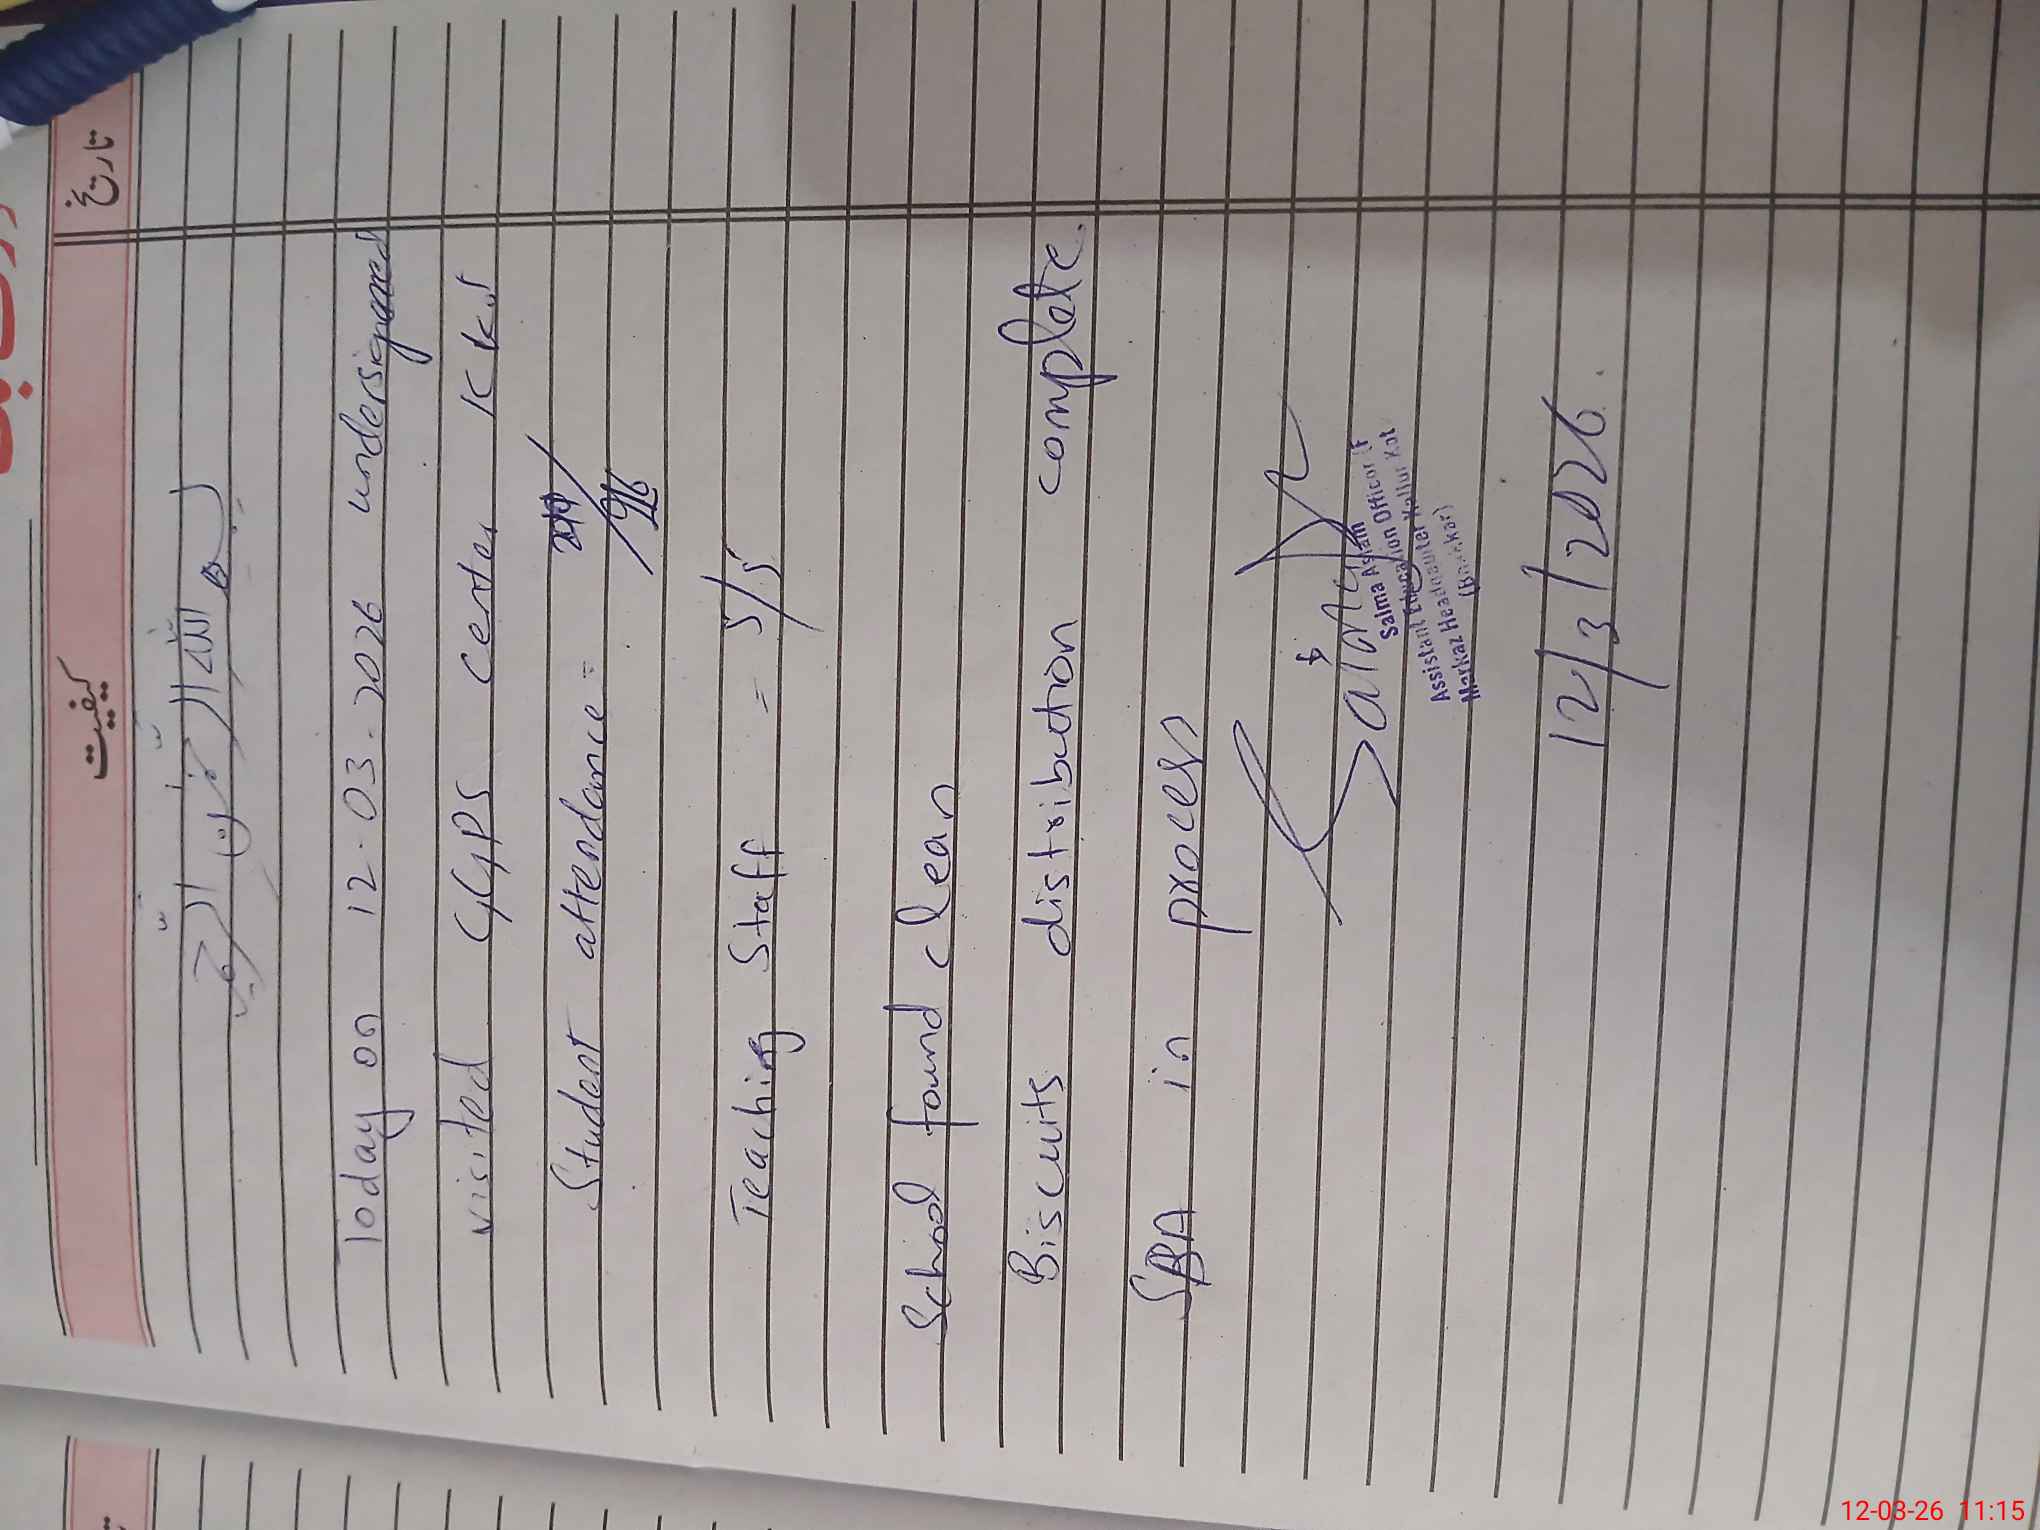 تاریخ
کیفیت
بسم اللہ الرحمٰن الرحیم
Today on 12.03.2026 undersigned
visited GGPS Center K Kot
Student attendance =
Teaching Staff = 5/5
School found clean
Biscuits distribution complete.
SBA in process
Salma Aslam
Assistant Education Officer (F
Markaz Headquarter Kallur Kot
(Bhakkar)
12/3/2026.
12-03-26 11:15